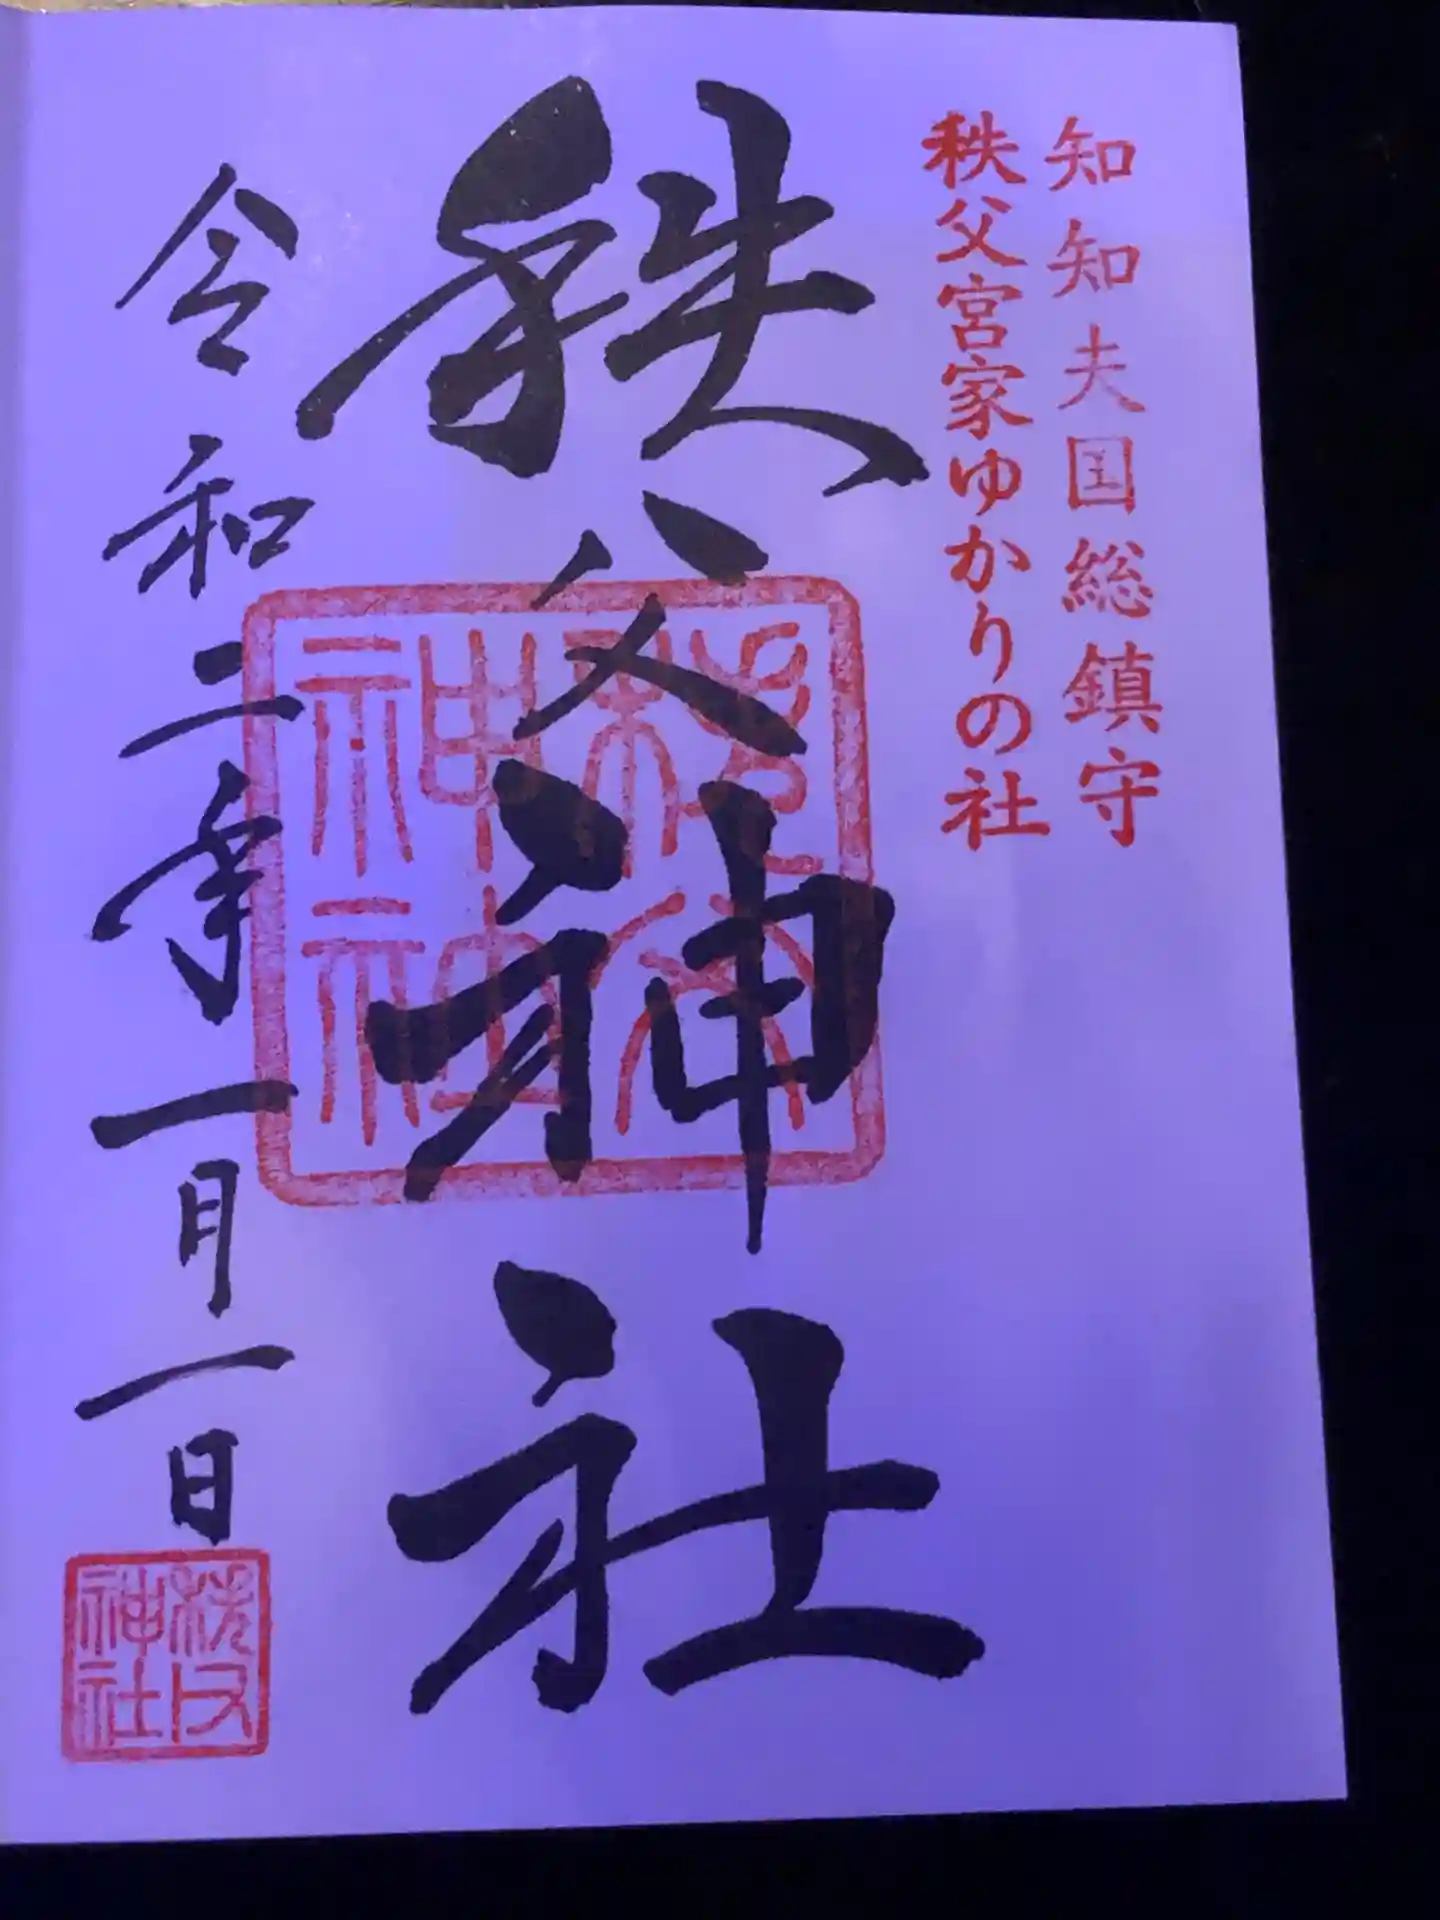 知知夫国総鎮守
秩父宮家ゆかりの社
秩父神社
令和二年一月一日
秩父
神社
秩父
神社